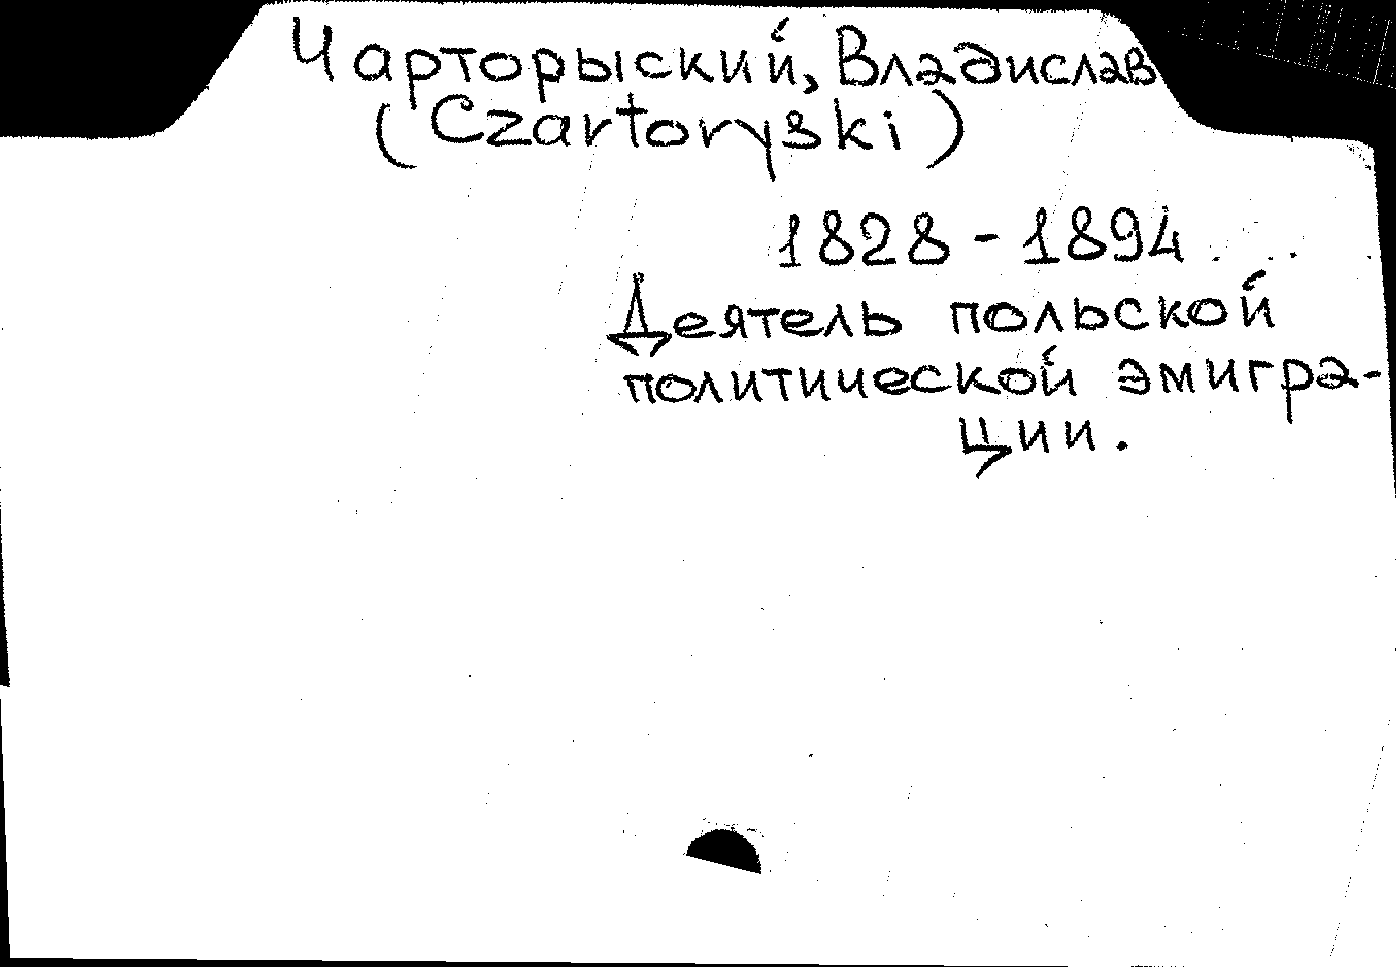 Чарторыский, Владислав
(Czartoryski)
1828 - 1894
Деятель польской
политической эмигра-
ции.